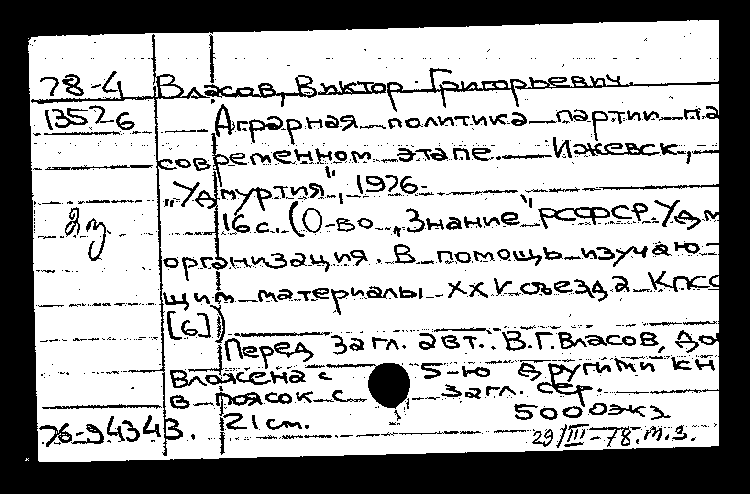 78-4 Власов, Виктор Григорьевич.
1352-6 Аграрная политика партии на
современном этапе. Ижевск,
„Удмуртия", 1976.
16 с. (О-во „Знание" РСФСР. Удм
организация. В помощь изучаю-
щим материалы XXV съезда КПСС
[6])
Перед загл. авт.: В.Г. Власов, до
Вложена с 5-ю другими кн
в поясок с загл. сер.
76-94343. 21 см. 5000 экз.
29/III-78. м.з.